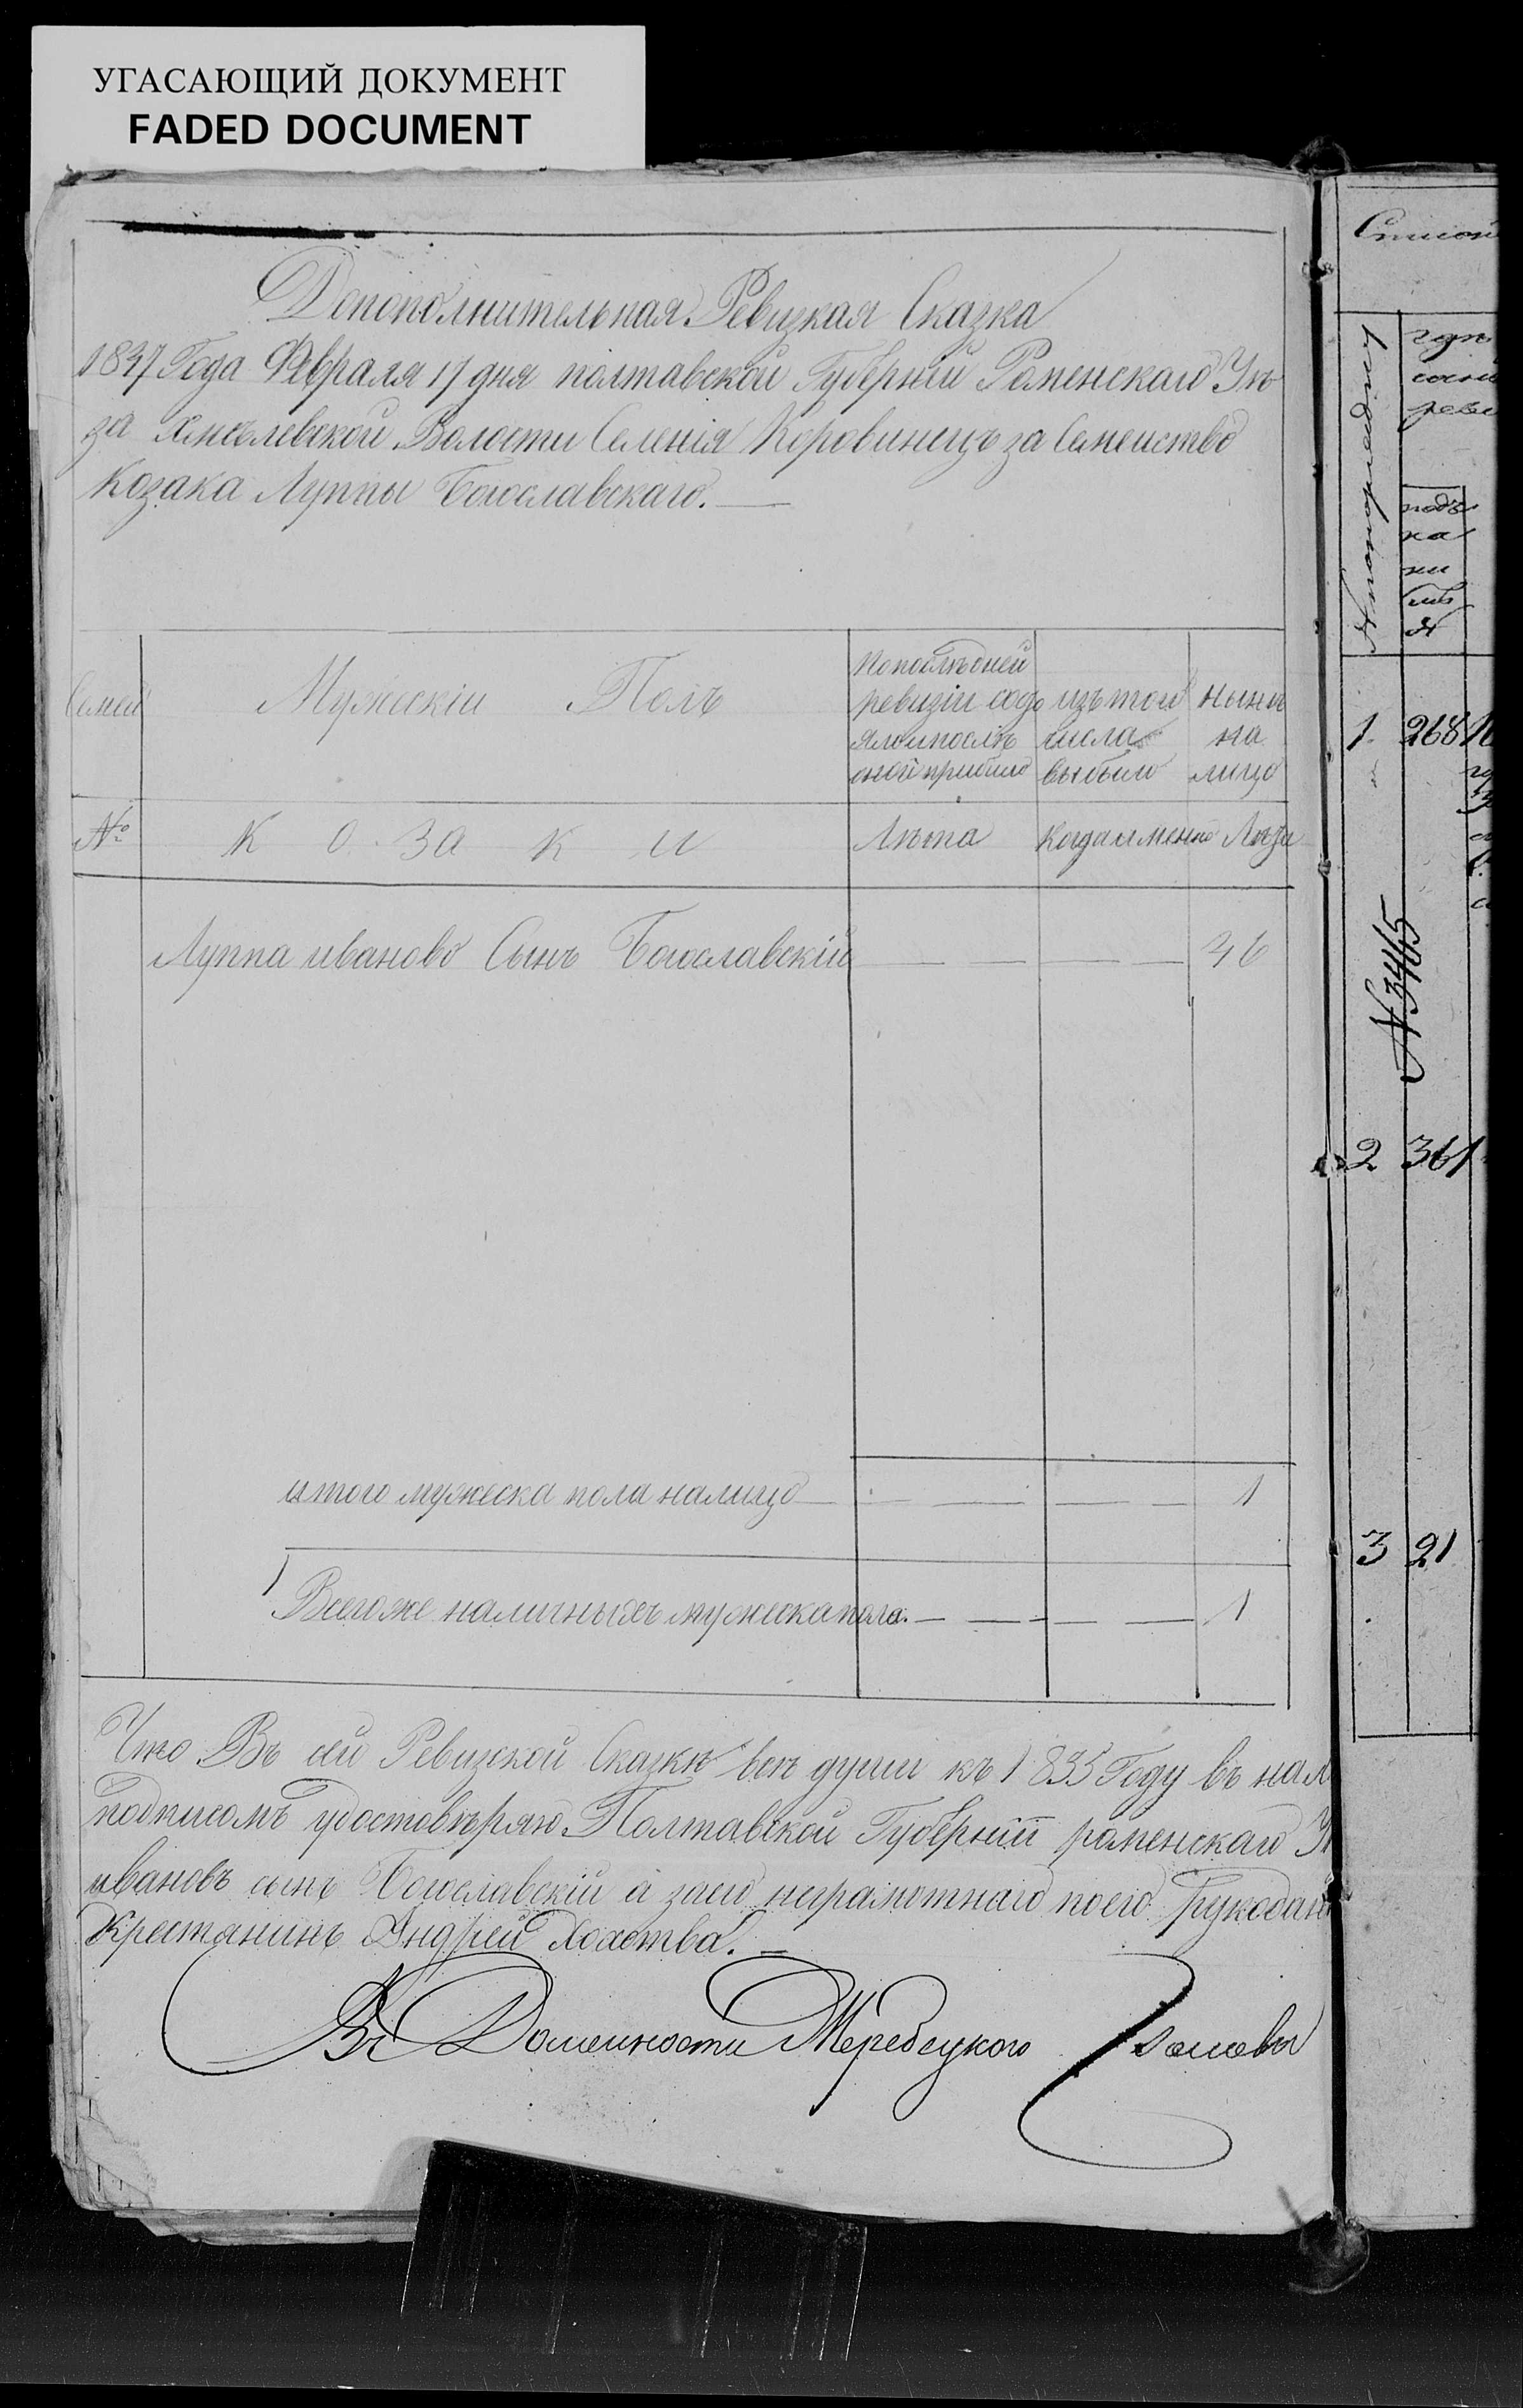 УГАСАЮЩИЙ ДОКУМЕНТ
FADED DOCUMENT
Допополнительная Ревизкая Сказка
1837 Года Февраля 17 дня полтавской Губерніи Роменскаго Уѣ
за Хмѣлевской Волости Селенія Коровинецъ за Семейство
Козака Луппы Богославскаго.
Семей
Мужескіи Полъ
По послѣдней
ревизіи
изъ того
нынѣ
числа
на
оной прибыло
выбыло
лицо
№
К О ЗА К И
Лѣта
Когда именно
Луппа иваново Сынъ Богославскій — — — — 46
итого мужеска пола налицо — — — — 1
Всегоже наличныхъ мужеска пола. — — — — 1
Что Въ сей Ревизской Сказкѣ всѣ души къ 1835 Году въ нал
подписомъ удостовѣряю Полтавской Губерніи роменскаго У
ивановъ сынъ Богославскій а заего неграмотнаго поего Рукодан
Крестянинъ Андрей
Въ Должности Жеребецкого Головы
Список
ревι
подъ
ка
1. 268
№3465
2 361
3 21